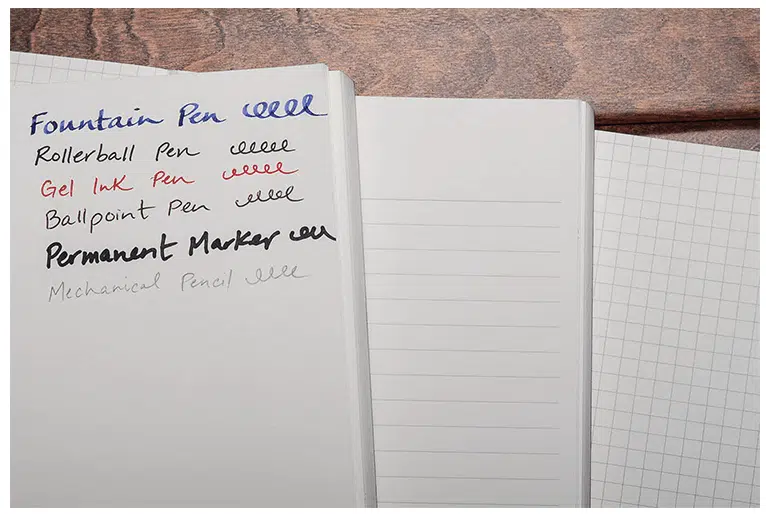 Fountain Pen
Rollerball Pen
Gel Ink Pen
Ballpoint Pen
Permanent Marker
Mechanical Pencil